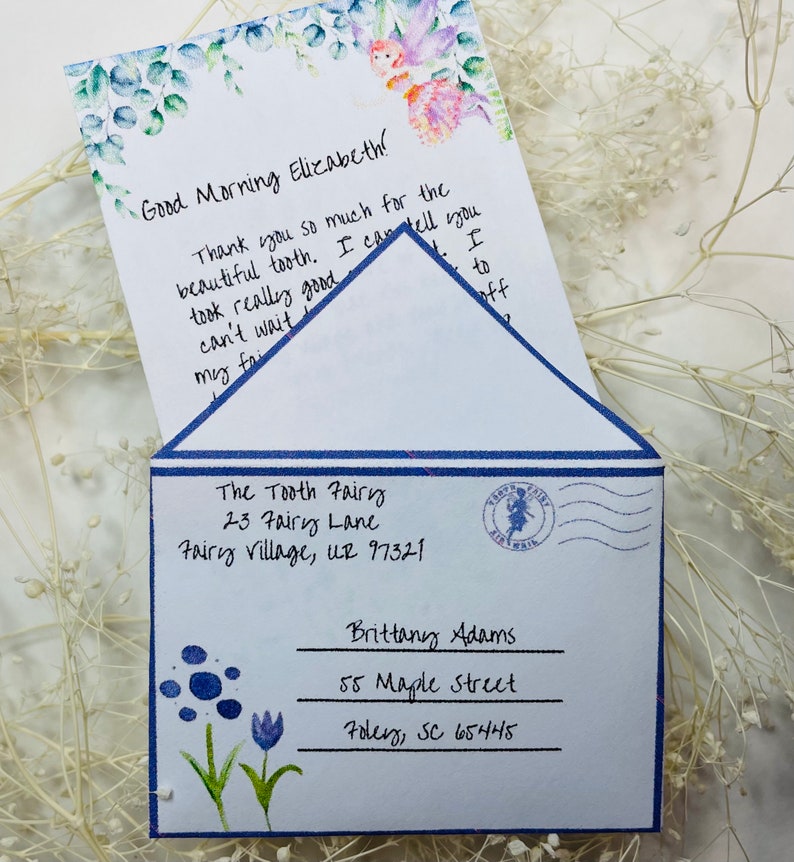 Good Morning Elizabeth!
Thank you so much for the
beautiful tooth. I can tell you
took really good
I
can't wait
to
my
off
The Tooth Fairy
23 Fairy Lane
Fairy Village, UR 97321
TOOTH FAIRY
AIR MAIL
Brittany Adams
55 Maple Street
Foley, SC 65445